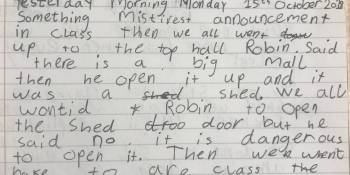 Yesterday Morning Monday 15th October 20
Something Mistirest announcement
in class then we all went
up to the top hall Robin. Said
there is a big Mall
then he open it up and it
was a shed shed, we all
wontid * Robin to open
the shed droo door but he
said no. it is dangerous
to open it. Then wer went
to are class the